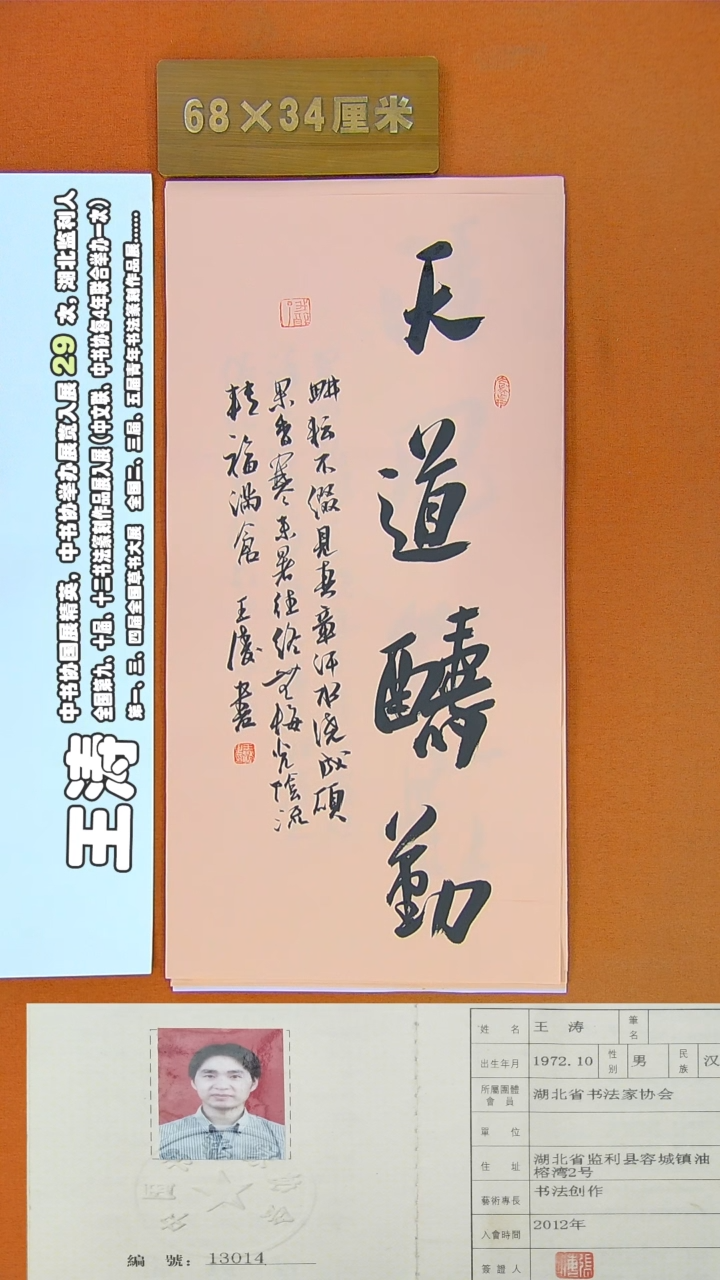 68×34厘米
王涛
中书协国展精英，中书协举办展赛入展29次，湖北监利人
全国第九、十届、十二书法篆刻作品展入展（中文联、中书协每4年联合举办一次）
第一、三、四届全国草书大展 全国二、三届、五届青年书法篆刻作品展……
天道酬勤
畊耘不辍见真章汗水浇成硕
果香寒来暑往终无悔光阴流
转福满仓 王涛书
姓名 王涛 筆名
出生年月 1972.10 性别 男 民族 汉
所屬團體會員 湖北省书法家协会
單位
住址 湖北省监利县容城镇油
榕湾2号
藝術專長 书法创作
入會時間 2012年
簽證人
編號：13014